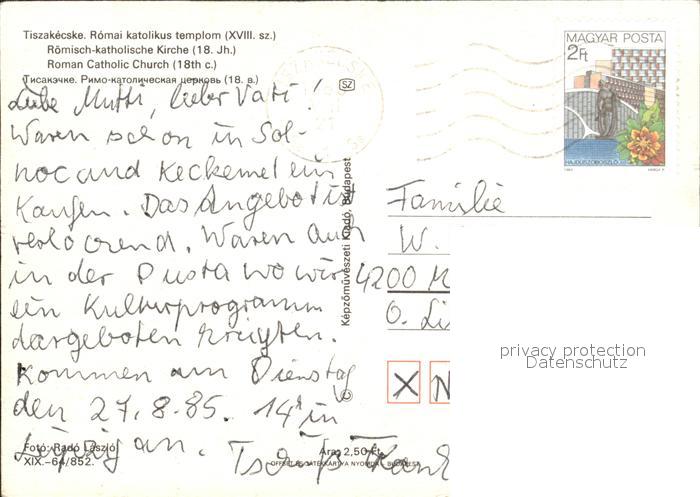 Tiszakécske. Római katolikus templom (XVIII. sz.)
Römisch-katholische Kirche (18. Jh.)
Roman Catholic Church (18th c.)
Тисакэчке. Римо-католическая церковь (18. в.)
Liebe Mutti, lieber Vati!
Waren schon in Sol-
noc und Keckemet ein
Kaufen. Das Angebot ist
verlockend. Waren auch
in der Pusta wo wir
ein Kulturprogramm
dargeboten kriegten.
Kommen am Dienstag
den 27.8.85. 14h in
Leipzig an.
Tschüß
Fotó: Radó László
XIX.–64/852.
Ára: 2,50 Ft
OFFSET ÉS JÁTÉKKÁRTYA NYOMDA – BUDAPEST
Képzőművészeti Kiadó, Budapest
SZ
MAGYAR POSTA
2Ft
HAJDÚSZOBOSZLÓ
Familie
W.
4200 M
O. Li
X N
privacy protection
Datenschutz